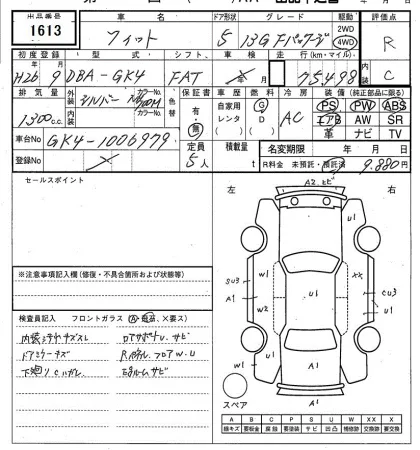 出品番号 車名 ドア形状 グレード 駆動 評価点
1613 フィット 5 13G Fパッケージ 2WD 4WD R
初度登録 型式 シフト 車検 走行(km・マイル) 内装
H26年 9月 DBA-GK4 FAT 年 月 75498 C
排気量 外装色 シルバー カラーNo. 色替 保証書 車歴 燃料 冷房 装備(純正部品に限る)
1300c.c. 内装色 カラーNo. 有・無 自家用 レンタ G D AC PS PW ABS
エアB AW SR
革 ナビ TV
車台No GK4-1006979 定員 積載量 名変期限 年 月 日
登録No 5人 t R料金 未預託・預託済 9.880円
セールスポイント
左 右
A2.ヒビ
U1
W1
XX
SU3
A1
U1
W2
CU3
U1
W1
U1
A1
A1
スペア
※注意事項記入欄(修復・不具合箇所および状態等)
検査員記入 フロントガラス(A・飛石、×要ス)
内装汚れキズスレ ロアサポートU、サビ
ドアミラーキズ フロアW.U
下廻りCハガレ ルームサビ
A B C P S U W X XX
線キズ 要板金 腐蝕 要塗装 サビ 凹凸 補修跡 要交換 交換跡